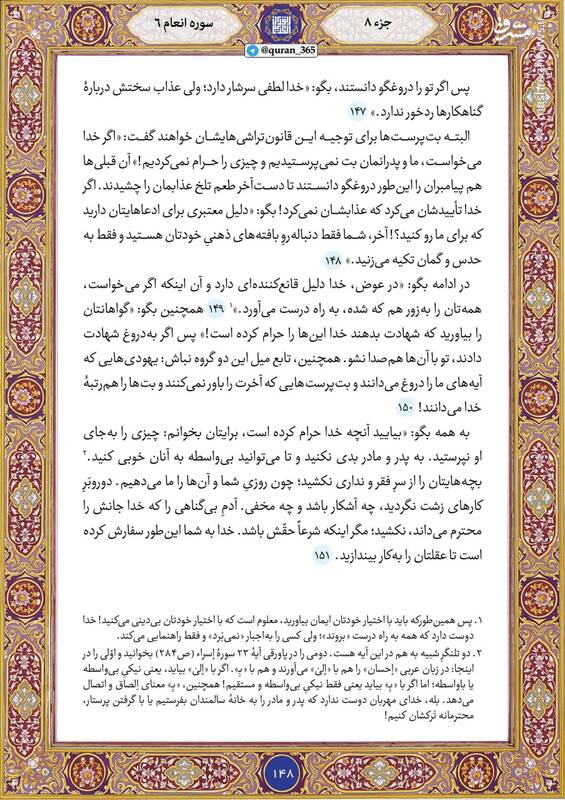 جزء ۸
سوره انعام ۶
@quran_365
پس اگر تو را دروغگو دانستند، بگو: «خدا لطفی سرشار دارد؛ ولی عذاب سختش دربارهٔ
گناهکارها ردخور ندارد.» ۱۴۷
البته بت‌پرست‌ها برای توجیه این قانون‌تراشی‌هایشان خواهند گفت: «اگر خدا
می‌خواست، ما و پدرانمان بت نمی‌پرستیدیم و چیزی را حرام نمی‌کردیم!» آن قبلی‌ها
هم پیامبران را این‌طور دروغگو دانستند تا دست‌آخر طعم تلخ عذابمان را چشیدند. اگر
خدا تأییدشان می‌کرد که عذابشان نمی‌کرد! بگو: «دلیل معتبری برای ادعاهایتان دارید
که برای ما رو کنید؟! آخر، شما فقط دنباله‌رو بافته‌های ذهنیِ خودتان هستید و فقط به
حدس و گمان تکیه می‌زنید.» ۱۴۸
در ادامه بگو: «در عوض، خدا دلیل قانع‌کننده‌ای دارد و آن اینکه اگر می‌خواست،
همه‌تان را به‌زور هم که شده، به راه درست می‌آورد.»۱ ۱۴۹ همچنین بگو: «گواهانتان
را بیاورید که شهادت بدهند خدا این‌ها را حرام کرده است!» پس اگر به‌دروغ شهادت
دادند، تو با آن‌ها هم‌صدا نشو. همچنین، تابع میل این دو گروه نباش: یهودی‌هایی که
آیه‌های ما را دروغ می‌دانند و بت‌پرست‌هایی که آخرت را باور نمی‌کنند و بت‌ها را هم‌رتبهٔ
خدا می‌دانند! ۱۵۰
به همه بگو: «بیایید آنچه خدا حرام کرده است، برایتان بخوانم: چیزی را به‌جای
او نپرستید. به پدر و مادر بدی نکنید و تا می‌توانید بی‌واسطه به آنان خوبی کنید.۲
بچه‌هایتان را از سرِ فقر و نداری نکشید؛ چون روزیِ شما و آن‌ها را ما می‌دهیم. دوروبَرِ
کارهای زشت نگردید، چه آشکار باشد و چه مخفی. آدمِ بی‌گناهی را که خدا جانش را
محترم می‌داند، نکشید؛ مگر اینکه شرعاً حقّش باشد. خدا به شما این‌طور سفارش کرده
است تا عقلتان را به‌کار بیندازید. ۱۵۱
۱. پس همین‌طورکه باید با اختیار خودتان ایمان بیاورید، معلوم است که با اختیار خودتان بی‌دینی می‌کنید! خدا
دوست دارد که همه به راه درست «بروند»؛ ولی کسی را به‌اجبار «نمی‌بَرد» و فقط راهنمایی می‌کند.
۲. دو تلنگرِ شبیه به هم در این آیه هست. دومی را در پاورقی آیهٔ ۲۳ سورهٔ اِسراء (ص۲۸۴) بخوانید و اوّلی را در
اینجا: در زبان عربی «إحسان» را هم با «إلیٰ» می‌آورند و هم با «بِ». اگر با «إلیٰ» بیاید، یعنی نیکیِ بی‌واسطه
یا باواسطه؛ اما اگر با «بِ» بیاید یعنی فقط نیکیِ بی‌واسطه و مستقیم! همچنین، «بِ» معنای اِلصاق و اتصال
می‌دهد. بله، خدای مهربان دوست ندارد که پدر و مادر را به خانهٔ سالمندان بفرستیم یا با گرفتن پرستار،
محترمانه تَرکشان کنیم!
۱۴۸